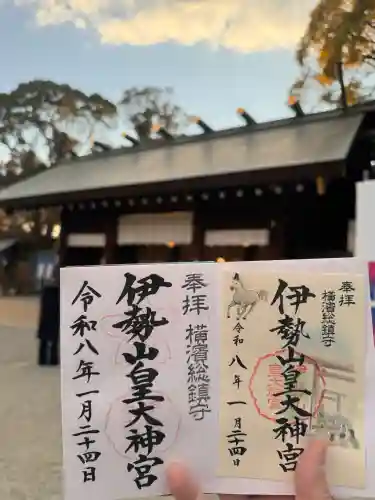 奉拝 横濱総鎮守
伊勢山皇大神宮
令和八年一月二十四日
奉拝
横濱総鎮守
伊勢山皇大神宮
令和八年一月二十四日